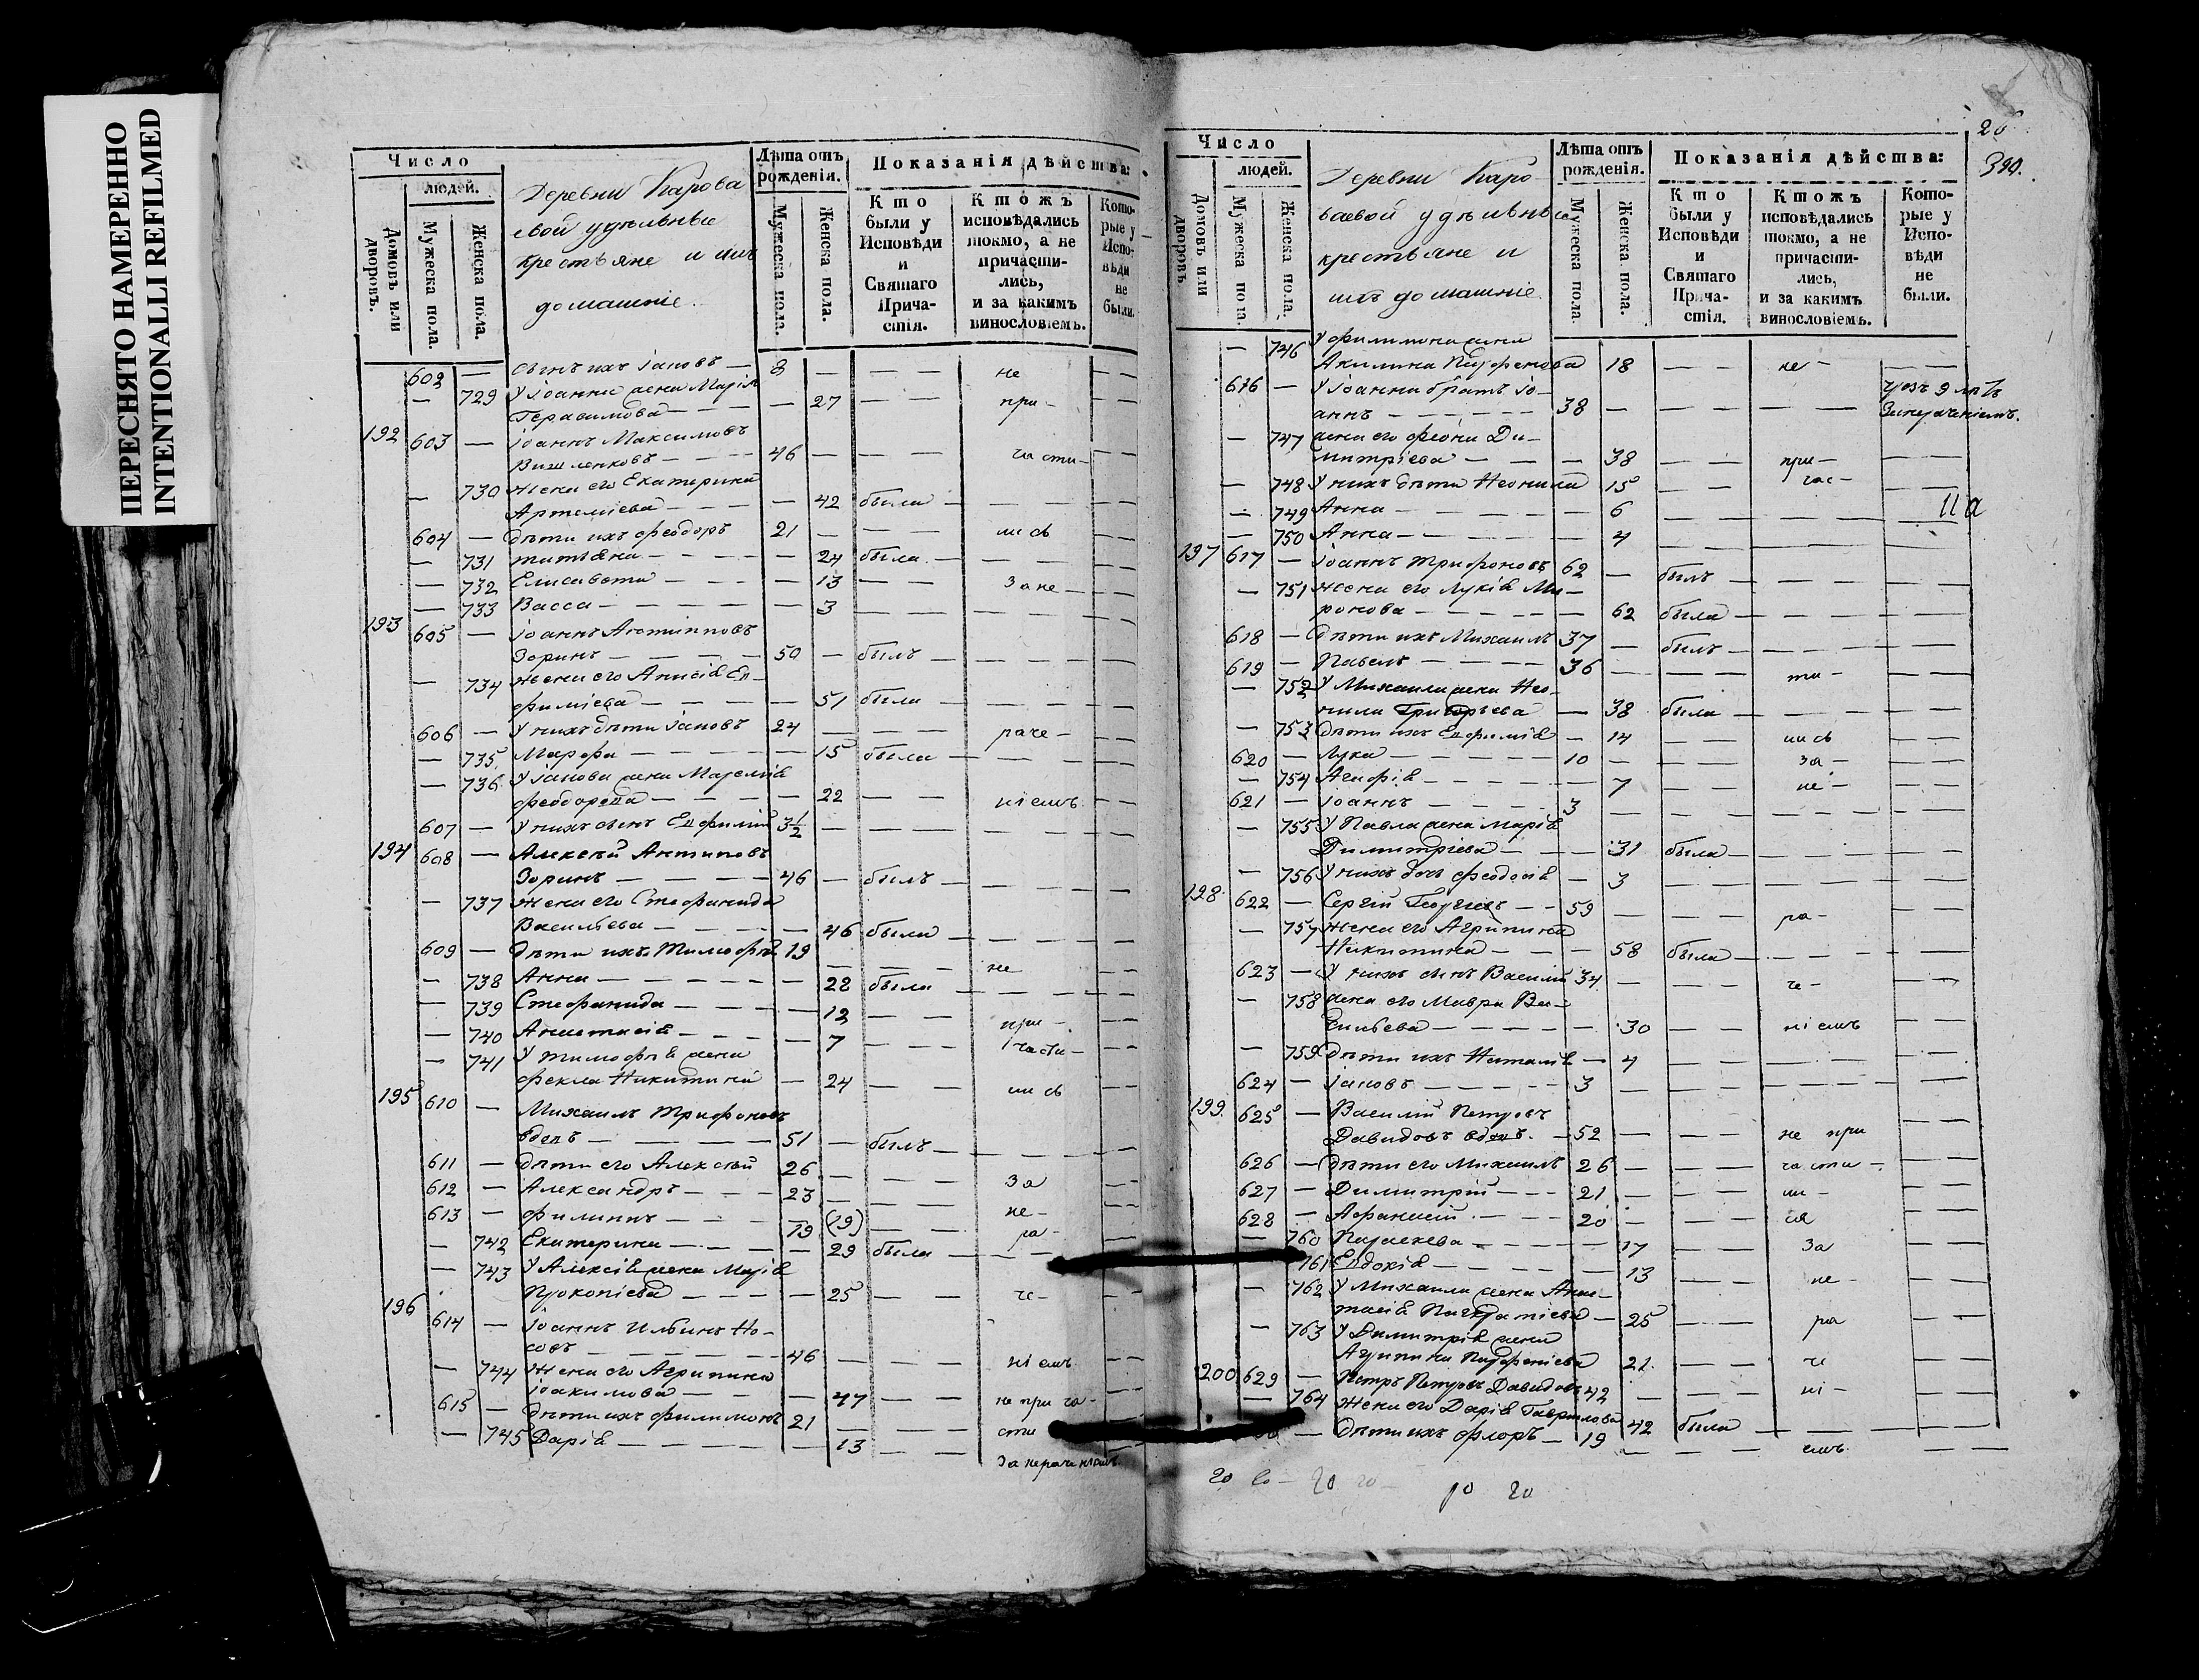 ПЕРЕСНЯТО НАМЕРЕННО
INTENTIONALLI REFILMED
Число
людей.
Домовъ или дворовъ.
Мужеска пола.
Женска пола.
Деревни Карова
евой удѣльные
крестьяне и ихъ
домашніе.
Лѣта отъ рожденія.
Мужеска пола.
Женска пола.
Показанія дѣйства:
Кто были у Исповѣди и Святаго Причастія.
Ктожъ исповѣдались токмо, а не причастились, и за какимъ винословіемъ.
Которые у Исповѣди не были.
602 — сынъ ихъ Іаковъ — 8 — — — не — —
— 729 У Іоанна жена Марія
Герасимова — — — — 27 — — при — — —
192 603 — Іоаннъ Максимовъ
— — — 46 — — — части —
— 730 жена его Екатерина
Артеміева — — — — 42 была — — —
604 — дѣти ихъ Феодоръ 21 — — — лись — —
— 731 Татіана — — — — 24 была — — —
— 732 Елисавета — — — 13 — — За не — — —
— 733 Васса — — — — — 3 — — — — —
193 605 — Іоаннъ Антиповъ
Зоринъ — — — — 50 — былъ — — — —
— 734 жена его Анисія Ев—
фиміева — — — — 51 была — — — —
606 — У нихъ дѣти Іаковъ 24 — — — раче — — —
— 735 Марфа — — — — 15 была — — — —
— 736 У Іакова жена
Феодорова — — — — 22 — — ніемъ — —
607 — У нихъ сынъ Евфимій 3½ — — — — —
194 608 — Алексѣй Антиповъ
Зоринъ — — — — 46 — былъ — — — —
— 737 жена его Стефанида
Васильева — — — — 46 была — — — —
609 — дѣти ихъ Тимофей 19 — — — не — —
— 738 Анна — — — — — — 22 была — — — —
— 739 Стефанида — — — — 12 — — при — — —
— 740 Анастасія — — — 7 — — части — — —
— 741 У Тимофея жена
Фекла Никитина — 24 — — лись — —
195 610 — Михаилъ Трифоновъ
вдовъ — — — — 51 — былъ — — — —
611 — дѣти его Алексѣй 26 — — — За — —
612 — Александръ — — — 23 — — — не — — —
613 — Филиппъ — — — 19 (19) — — ра — — —
— 742 Екатерина — — — — 29 была — — —
— 743 У Алексія жена Марія
Прокопіева — — — — 25 — — че — — —
196 614 — Іоаннъ Ильинъ Но—
совъ — — — — 46 — — — ніемъ — —
— 744 Жена его Агрипина
Іоакимова — — — 47 — — не при ча —
615 — дѣти ихъ Филимонъ 21 — — — сти
— 745 Дарія — — — — — 13 — — За нераченіемъ
20
390.
Число
людей.
Домовъ или дворовъ
Мужеска пола.
Женска пола.
Деревни Каро
ваевой удѣльные
крестьяне и
ихъ домашніе.
Лѣта отъ рожденія.
Мужеска пола.
Женска пола.
Показанія дѣйства:
Кто были у Исповѣди и Святаго Причастія.
Ктожъ исповѣдались токмо, а не причастились, и за какимъ винословіемъ.
Которые у Исповѣди не были.
— 746 У Филимона жена
Акилина Парфенова 18 — — не — — —
616 — У Іоанна братъ Іо—
аннъ — — — — — — 38 — — — — — чрезъ 9 лѣтъ
Занераченіемъ.
— 747 жена его Ди—
митріева — — — 38 — — при — — —
— 748 У нихъ дѣти Неонила 15 — — час — — —
— 749 Анна — — — — — 6 — — — — —
11а
— 750 Анна — — — — — 4 — — — — —
197 617 — Іоаннъ Трифоновъ 62 — былъ — — — —
— 751 жена его Лукія Ми—
ронова — — — — — 62 была — — — —
618 — дѣти ихъ Михаилъ 37 — былъ — — — —
619 — Павелъ — — — — 36 — — — ти — — —
— 752 У Михаила жена Нео—
нила Григорьева — 38 была — — — —
— 753 дѣти ихъ Евфимія — 14 — — лись — —
620 — Лука — — — — — 10 — — — за — — —
— 754 Агафія — — — — — 7 — — не — — —
621 — Іоаннъ — — — — 3 — — — — — —
— 755 У Павла жена Марія
Димитріева — — — 31 была — — — —
— 756 У нихъ дочь Феодосія — 3 — — — — —
198 622 — Сергій Георгіевъ — — 59 — — — ра — — —
— 757 жена его Агрипина
Никитина — — — — 58 была — — — —
623 — У нихъ сынъ Василій 34 — — — че — — —
— 758 жена его Мавра Ва—
сильева — — — — — 30 — — ніемъ — —
— 759 дѣти ихъ Наталія — 4 — — — — —
624 — Іаковъ — — — — — 3 — — — — — —
199 625 — Василій Петровъ
Давидовъ вдовъ. — 52 — — — не при — —
626 — дѣти его Михаилъ 26 — — — части — — —
627 — Димитрій — — — 21 — — — ли — — —
628 — Афанасій — — — 20 — — — ся — —
— 760 Параскева — — — — 17 — — За — —
761 Евдокія — — — — — 13 — — не — — —
— 762 У Михаила жена Анас—
тасія Панкратіева — 25 — — ра — —
— 763 У Димитрія жена
Агрипина Парфеніева 21. — — че — —
200 629 — Петръ Петровъ Давидовъ 42 — — — ні — — —
— 764 Жена его Дарія Гаврилова 42 была — — — —
— дѣти ихъ Флоръ — 19 — — — емъ — —
20 20 20 20